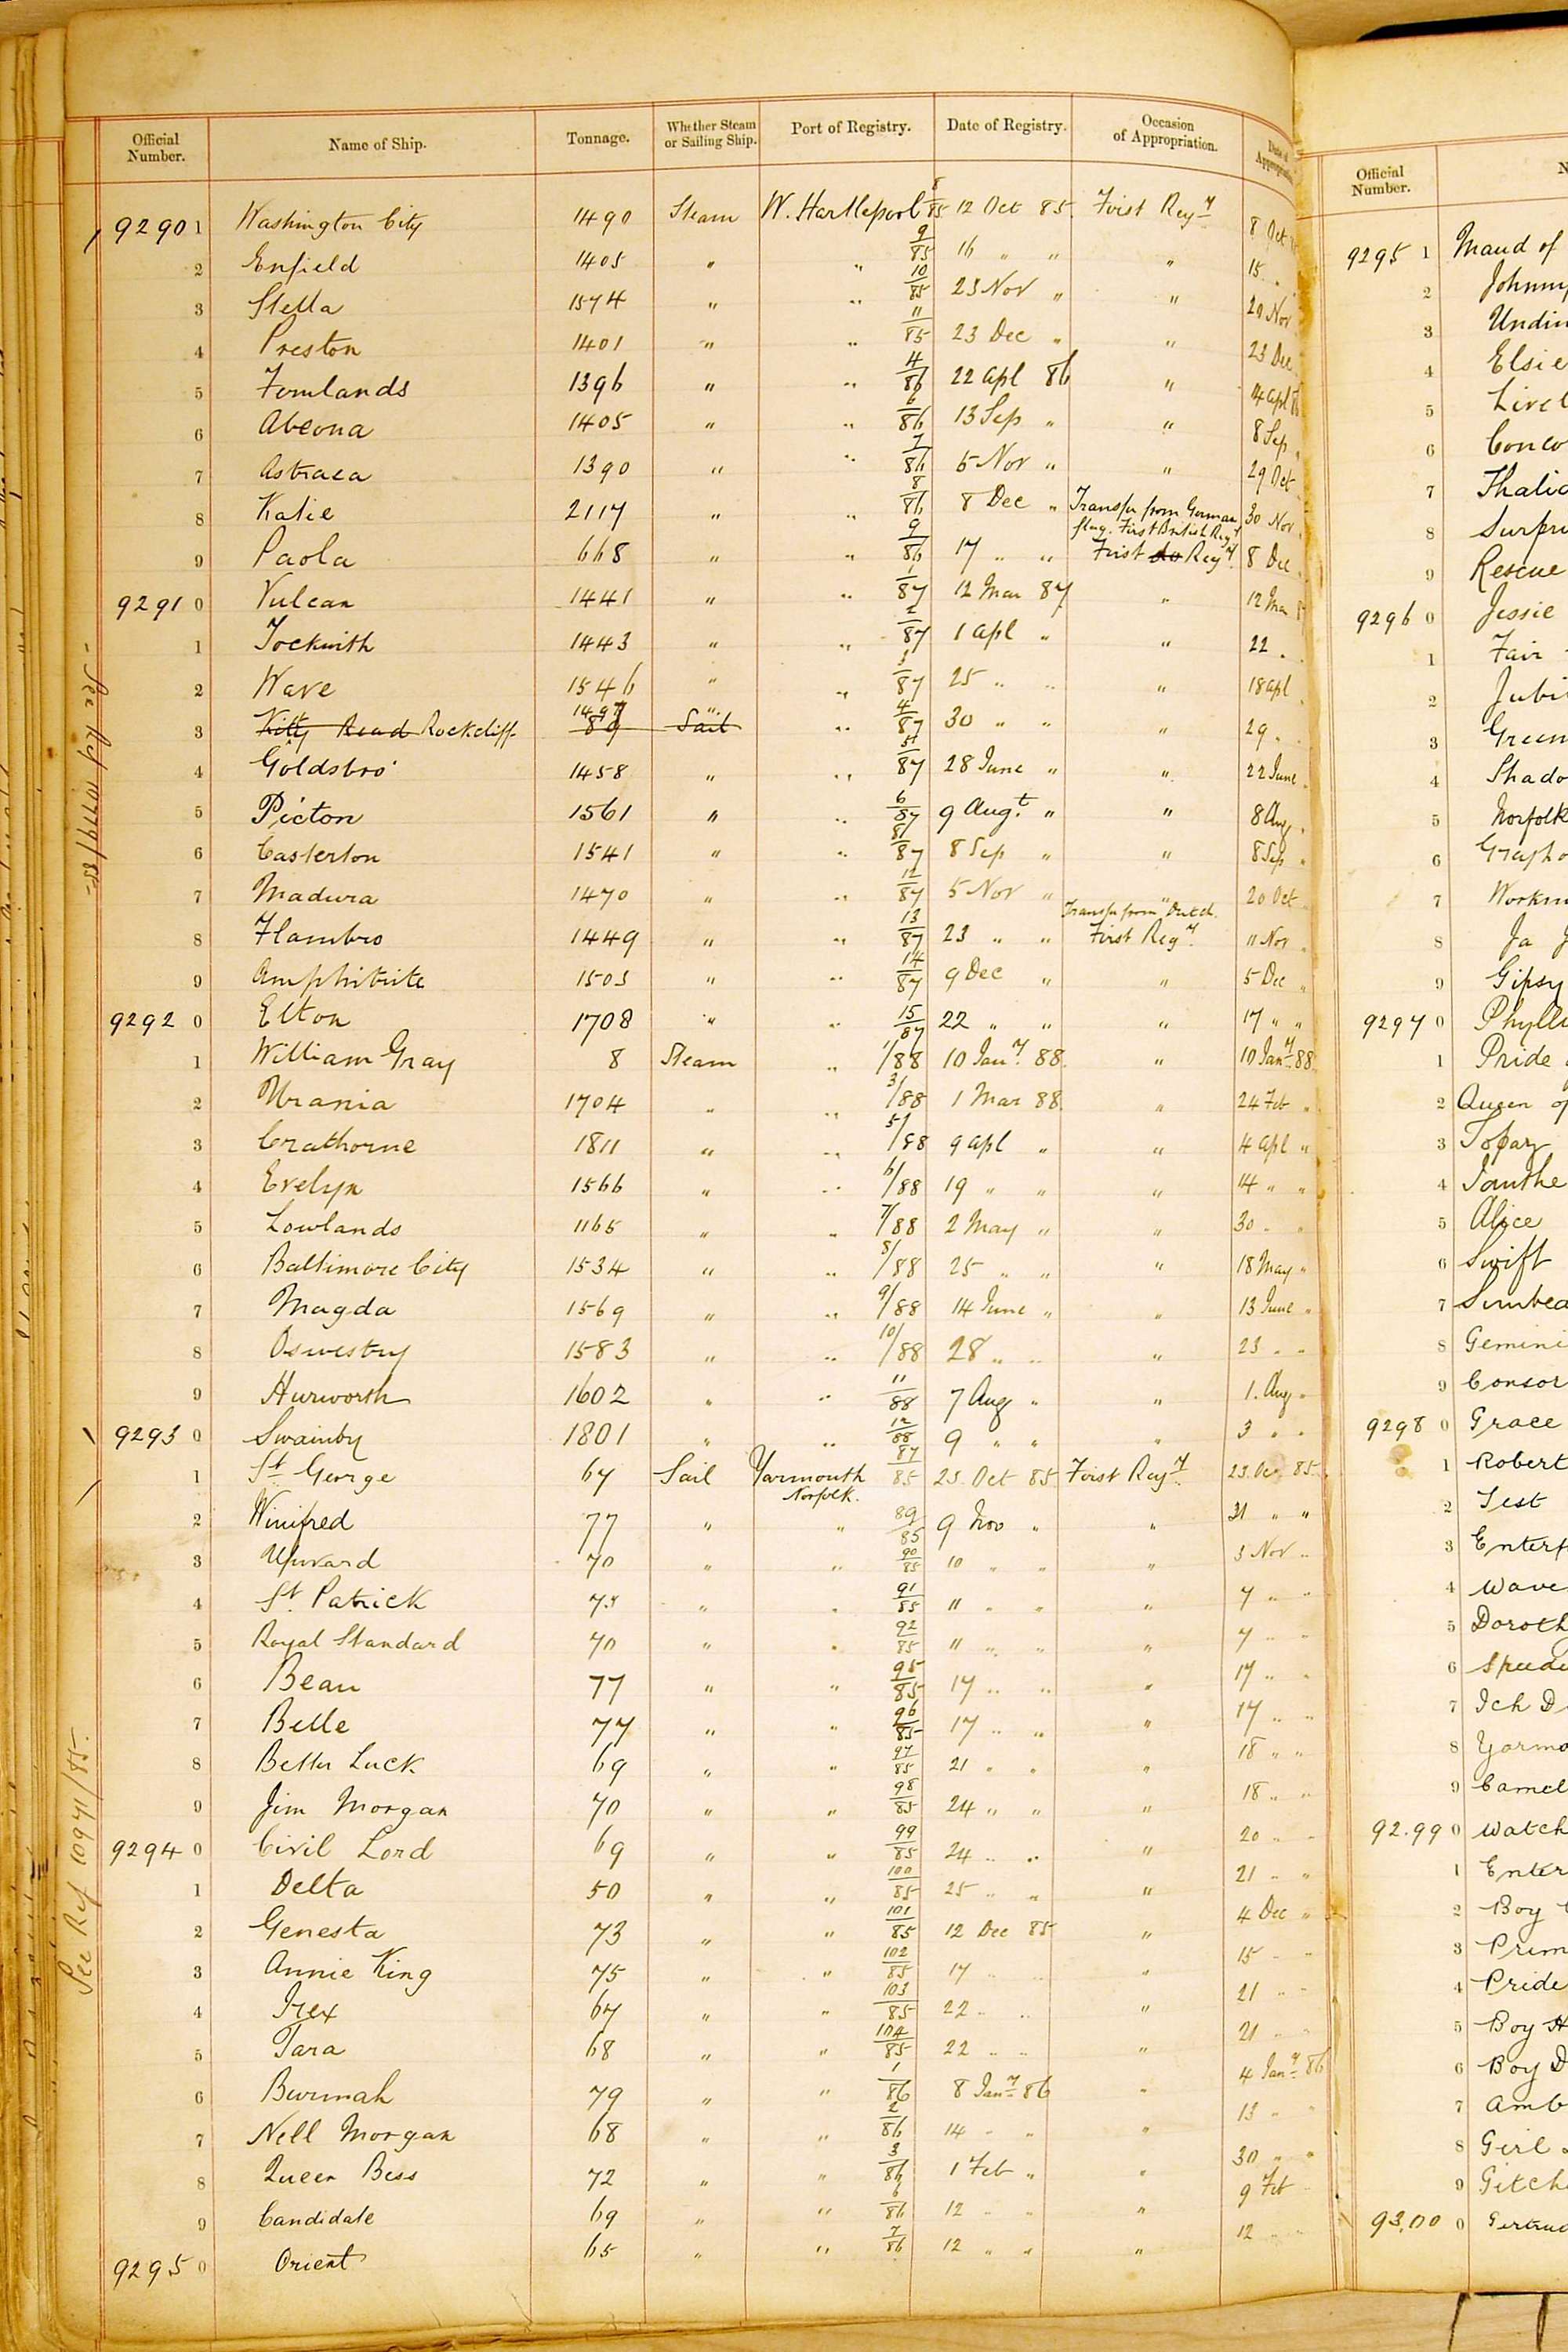 Official Number. Name of Ship. Tonnage. Whether Steam or Sailing Ship. Port of Registry. Date of Registry. Occasion of Appropriation. Date of Appropriation
9290 1 Washington City 1490 Steam W. Hartlepool 8/85 12 Oct 85 First Regy 8 Oct
2 Enfield 1405 " " 9/85 16 " " " 15 "
3 Stella 1574 " " 10/85 23 Nov " " 20 Nov
4 Preston 1401 " " 11/85 23 Dec " " 23 Dec
5 Fernlands 1396 " " 4/86 22 Apl 86 " 14 Apl 8
6 Abeona 1405 " " 6/86 13 Sep " " 8 Sep "
7 Astraea 1390 " " 7/86 5 Nov " " 29 Oct
8 Katie 2117 " " 8/86 8 Dec " Transfer from German flag. First British Regy 30 Nov
9 Paola 668 " " 9/86 17 " " First do Regy 8 Dec
9291 0 Vulcan 1441 " " 1/87 12 Mar 87 " 12 Mar 8
1 Tockwith 1443 " " 2/87 1 Apl " " 22 "
2 Wave 1546 " " 3/87 25 " " " 18 Apl
3 Kitty Read Rockcliff 1497 89 " Sail " 4/87 30 " " " 29 "
4 Goldsbro' 1458 " " 5/87 28 June " " 22 June
5 Picton 1561 " " 6/87 9 Augt. " " 8 Aug "
6 Casterton 1541 " " 8/87 8 Sep " " 8 Sep "
7 Madura 1470 " " 12/87 5 Nov " " 20 Oct
8 Flambro 1449 " " 13/87 23 " " Transfer from Dutch. First Regy. 11 Nov "
9 Amphitrite 1505 " " 14/87 9 Dec " " 5 Dec "
9292 0 Elton 1708 " " 15/87 22 " " " 17 " "
1 William Gray 8 Steam " 1/88 10 Jany. 88 " 10 Jany 88
2 Urania 1704 " " 3/88 1 Mar 88 " 24 Feb "
3 Crathorne 1811 " " 5/88 9 Apl " " 4 Apl "
4 Evelyn 1566 " " 6/88 19 " " " 14 " "
5 Lowlands 1165 " " 7/88 2 May " " 30 " "
6 Baltimore City 1534 " " 8/88 25 " " " 18 May "
7 Magda 1569 " " 9/88 14 June " " 13 June "
8 Oswestry 1583 " " 10/88 28 " " " 23 " "
9 Hurworth 1602 " " 11/88 7 Aug " " 1. Aug "
9293 0 Swainby 1801 " " 12/88 9 " " " 3 " "
1 St. George 67 Sail Yarmouth Norfolk. 87/85 23. Oct 85 First Regy. 23. Oct 85
2 Winifred 77 " " 89/85 9 Nov " " 31 " "
3 Upward 70 " " 90/85 10 " " " 3 Nov "
4 St. Patrick " " 91/85 11 " " " 7 " "
5 Royal Standard 70 " " 92/85 11 " " " 7 " "
6 Beau 77 " " 95/85 17 " " " 17 " "
7 Belle 77 " " 96/85 17 " " " 17 " "
8 Better Luck 69 " " 97/85 21 " " 18 " "
9 Jim Morgan 70 " " 98/85 24 " " " 18 " "
9294 0 Civil Lord 69 " " 99/85 24 " " " 20 " "
1 Delta 50 " " 100/85 25 " " " 21 " "
2 Genesta 73 " " 101/85 12 Dec 85 " 4 Dec "
3 Annie King 75 " " 102/85 17 " " 15 " "
4 Irex 67 " " 103/85 22 " " " 21 " "
5 Tara 68 " " 104/85 22 " " " 21 " "
6 Burmah 79 " " 1/86 8 Jany 86 " 4 Jany 86
7 Nell Morgan 68 " " 2/86 14 " " " 13 " "
8 Queen Bess 72 " " 3/86 1 Feb " " 30 " "
9 Candidate 69 " " 6/86 12 " " " 9 Feb "
9295 0 Orient 65 " " 7/86 12 " " " 12 " "
See Reg 10779/85
See Ref 10971/85.
Official Number. N
9295 1 Maud of
2 Johnny
3 Undin
4 Elsie
5 Livel
6 Conco
7 Thalia
8 Surpri
9 Rescue
9296 0 Jessie
1 Fair
2 Jubi
3 Green
4 Shado
5 Norfolk
6 Grapho
7 Workm
8 Ja J
9 Gipsy
9297 0 Phylli
1 Pride
2 Queen of
3 Topaz
4 Ianthe
5 Alice
6 Swift
7 Sunbea
8 Gemini
9 Consor
9298 0 Grace
1 Robert
2 Test
3 Enterp
4 Wave
5 Doroth
6 Speed
7 Ich D
8 Yarmo
9 Camel
92.99 0 Watch
1 Enter
2 Boy
3 Prim
4 Pride
5 Boy H
6 Boy D
7 Amb
8 Girl
9 Gitch
93,00 0 Gertrud